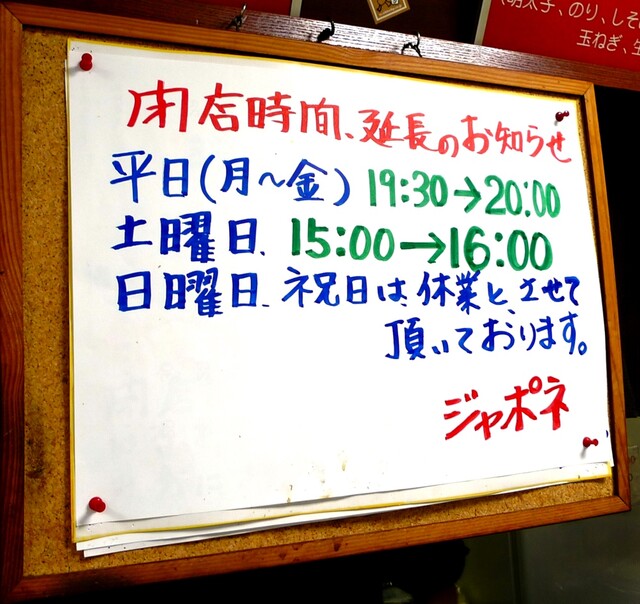 明太子、のり、しそ
玉ねぎ、
閉店時間、延長のお知らせ
平日(月〜金) 19:30→20:00
土曜日、15:00→16:00
日曜日、祝日は、休業と、させて
頂いております。
ジャポネ